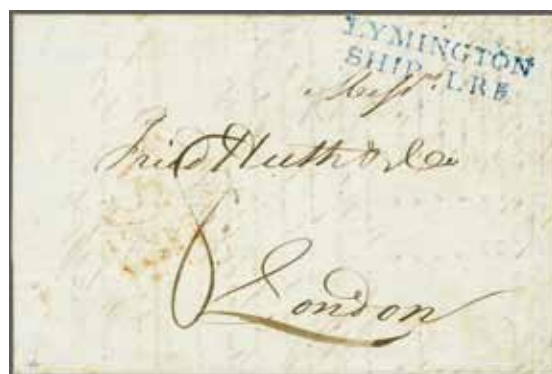 LYMINGTON
SHIP LRE
Messrs.
Fried Huth & Co
8
London